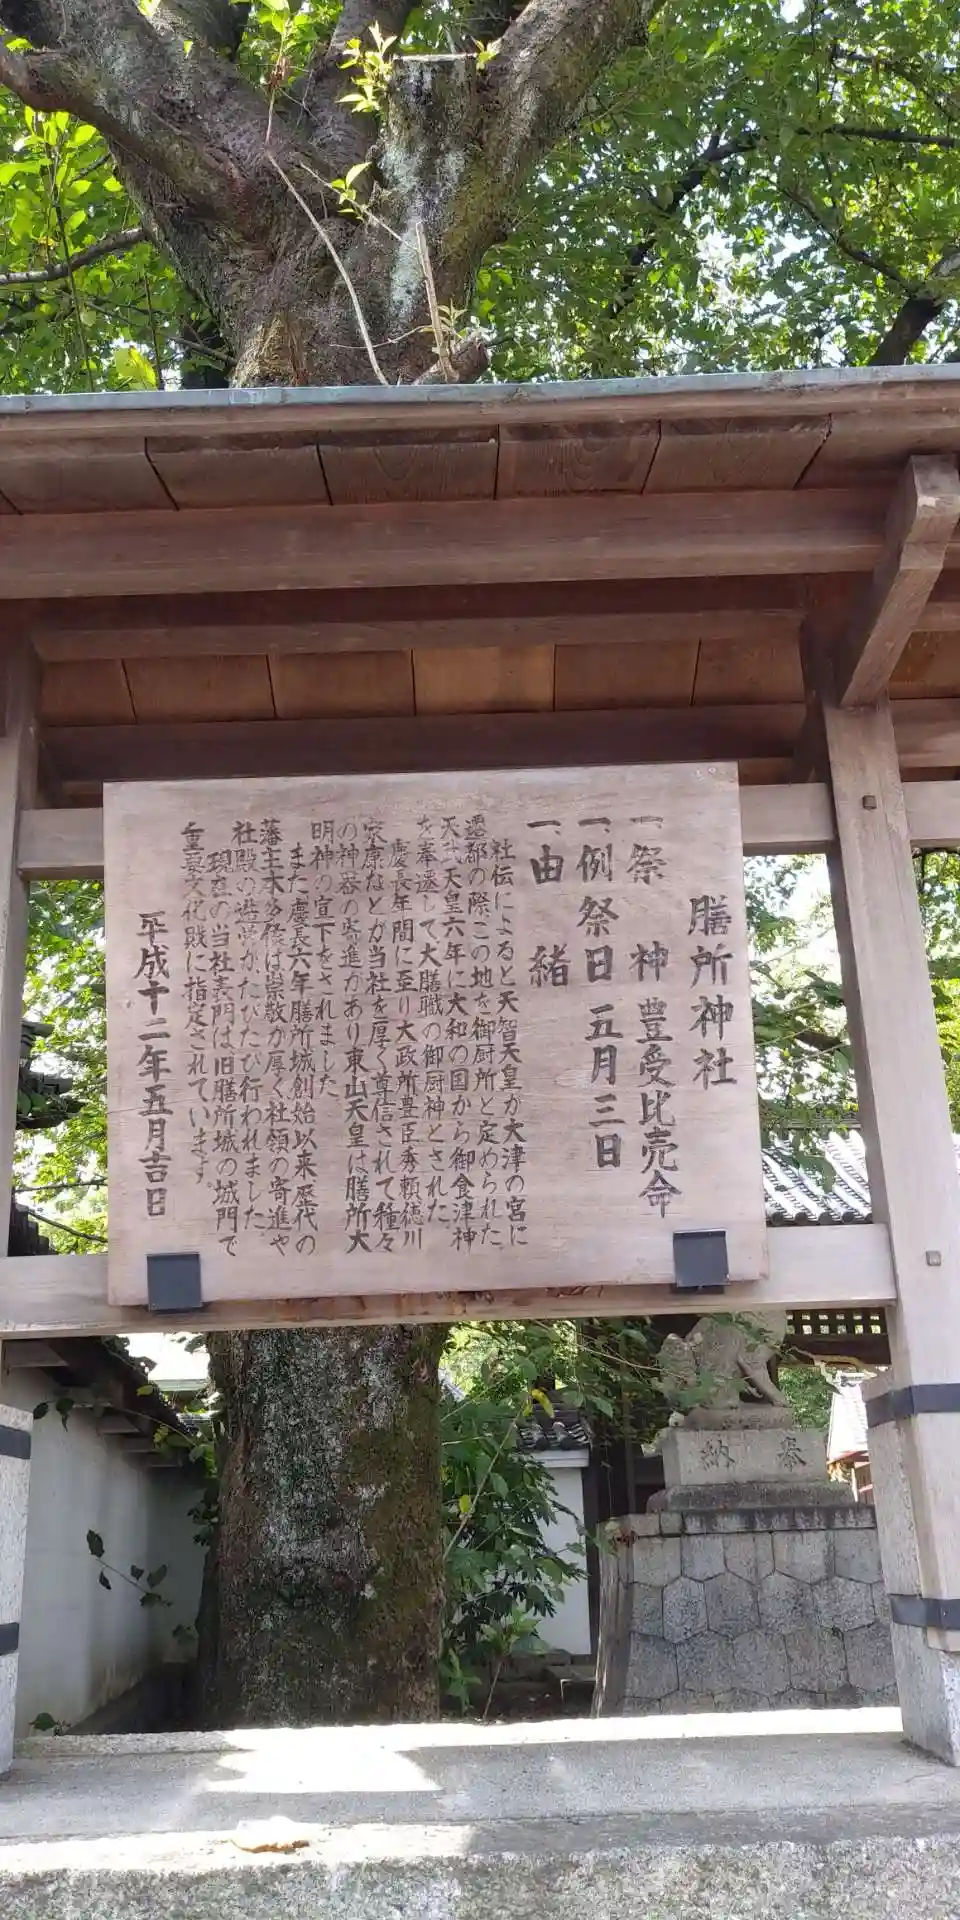 膳所神社
一、祭 神 豊受比売命
一、例祭日 五月三日
一、由 緒
社伝によると天智天皇が大津の宮に
遷都の際この地を御厨所と定められた
天武天皇六年に大和の国から御食津神
を奉遷して大膳職の御厨神とされた。
慶長年間に至り大政所豊臣秀頼徳川
家康などが当社を厚く尊信されて種々
の神器の寄進があり東山天皇は膳所大
明神の宣下をされました
また慶長六年膳所城創始以来歴代の
藩主本多候は崇敬が厚く社領の寄進や
社殿の造営がたびたび行われました。
現在の当社表門は旧膳所城の城門で
重要文化財に指定されています。
平成十二年五月吉日
奉納